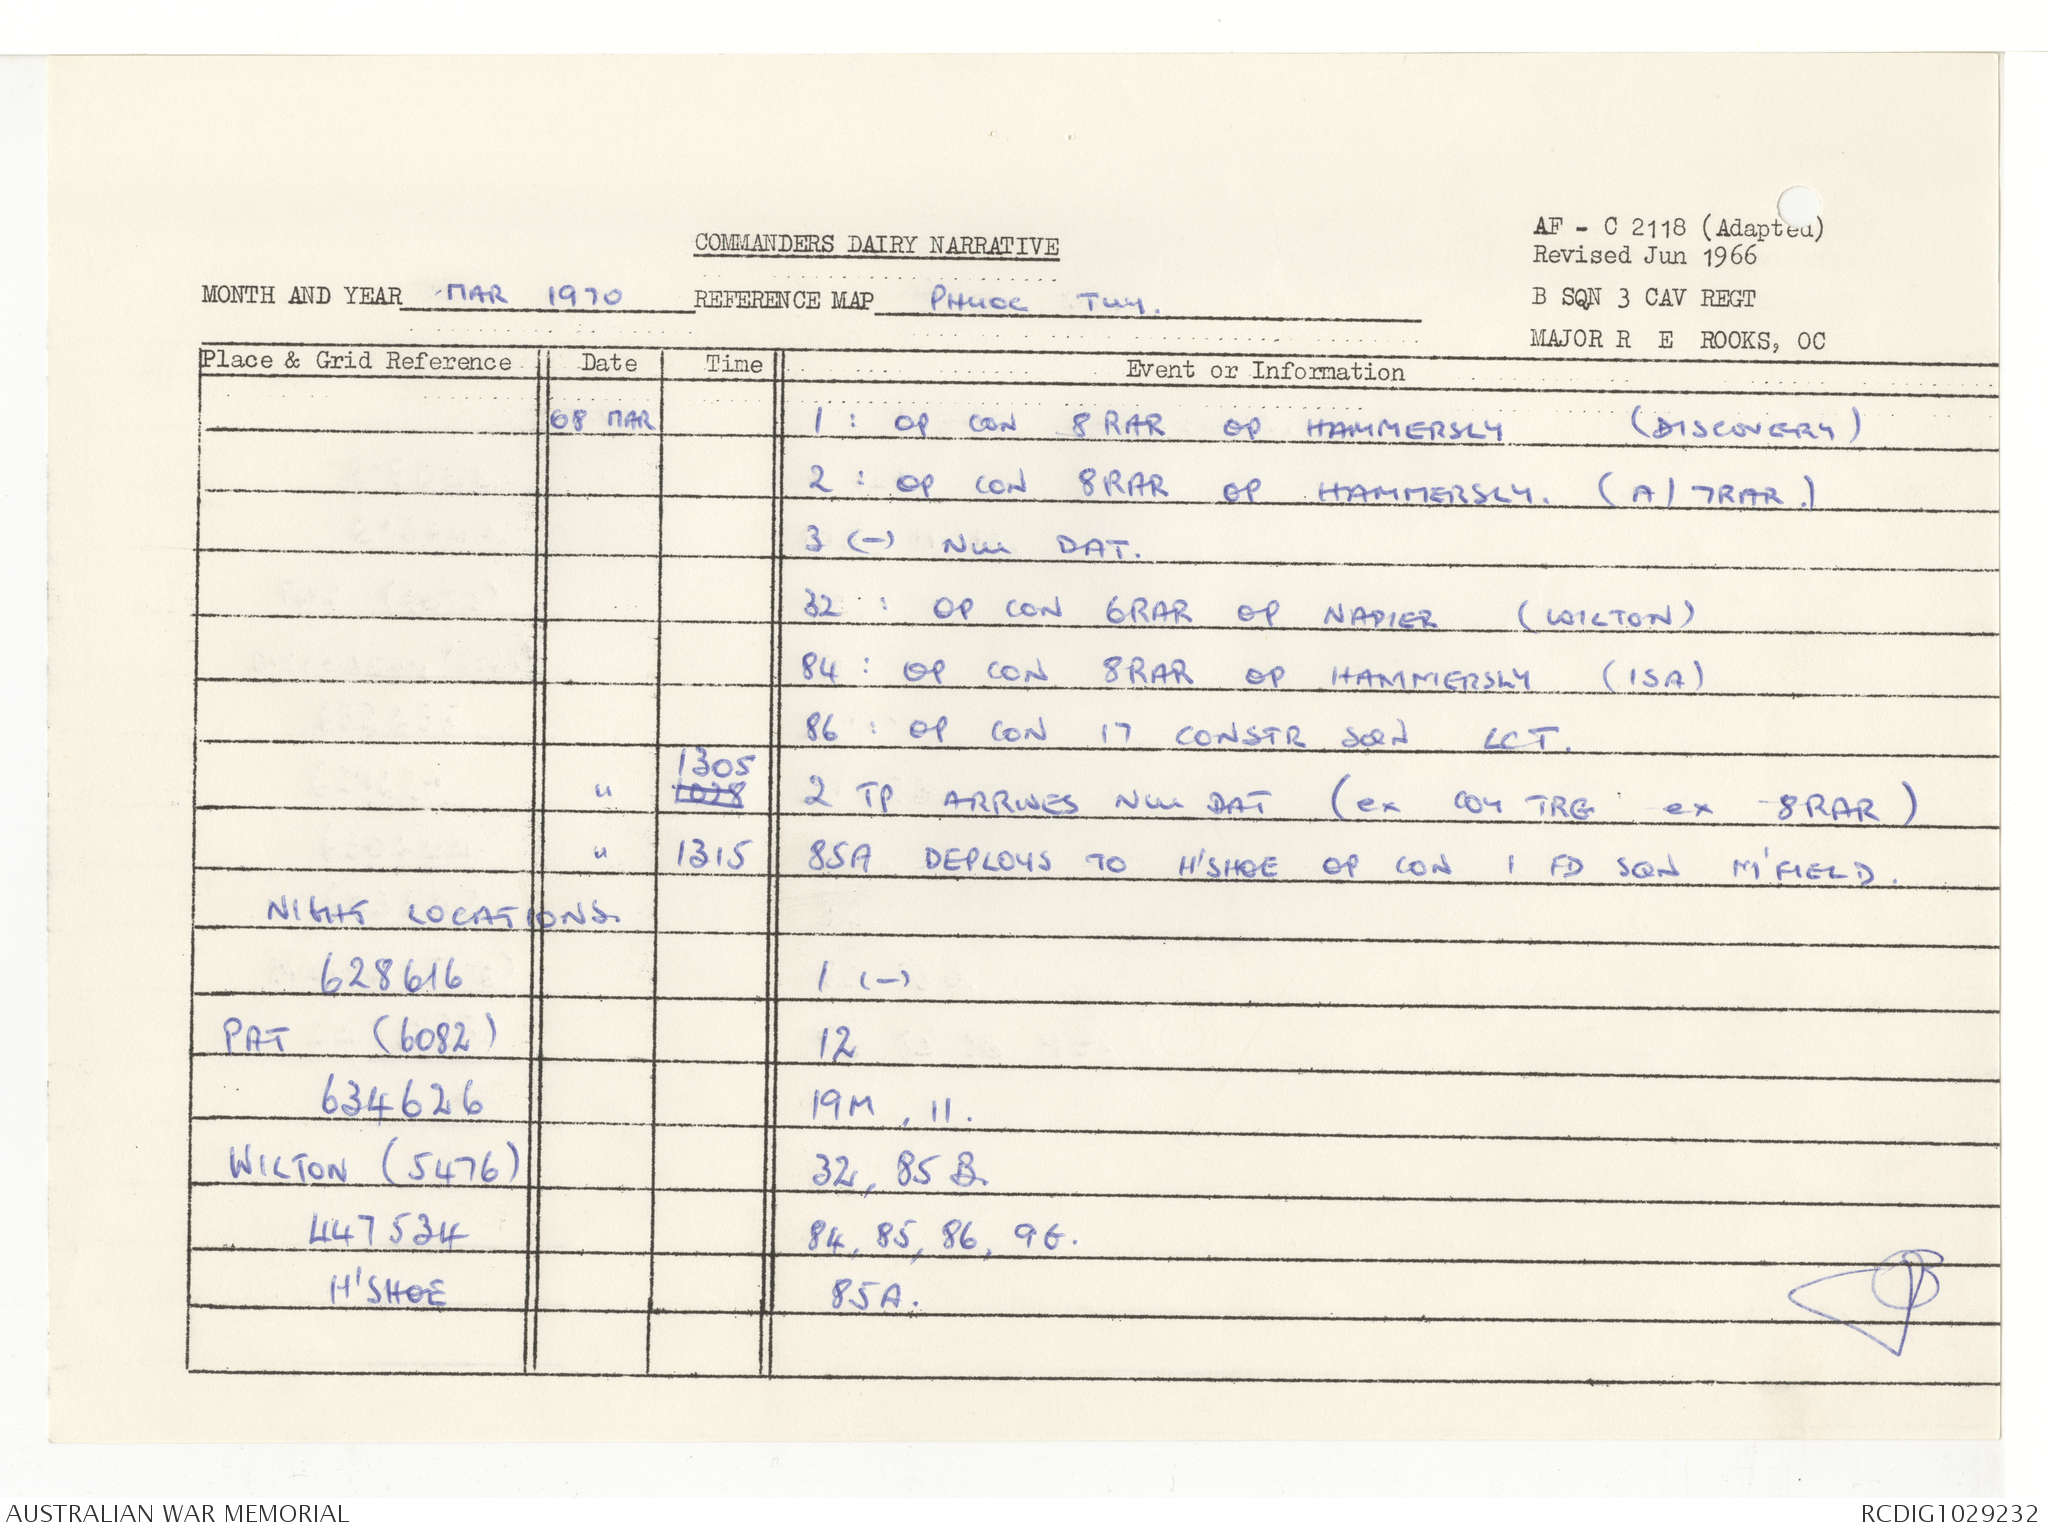 AF - C 2118 (Adapted)
COMMANDERS DAIRY NARRATIVE
Revised Jun 1966
MONTH AND YEAR MAR 1970 REFERENCE MAP PHUOC TUY.
B SQN 3 CAV REGT
MAJOR R E ROOKS, OC
Place & Grid Reference Date Time Event or Information
08 MAR 1 : OP CON 8 RAR OP HAMMERSLY (DISCOVERY)
2 : OP CON 8RAR OP HAMMERSLY. (A/7RAR.)
3 (-) NUI DAT.
32 : OP CON 6RAR OP NAPIER (WILTON)
84 : OP CON 8RAR OP HAMMERSLY (ISA)
86 : OP CON 17 CONSTR SQN LCT.
1305
" 1028 2 TP ARRIVES NUI DAT (ex COY TRG ex 8RAR)
" 1315 85A DEPLOYS TO H'SHOE OP CON 1 FD SQN M'FIELD.
NIGHT LOCATIONS.
628616 1 (-)
PAT (6082) 12
634626 19M, 11.
WILTON (5476) 32, 85B.
447534 84, 85, 86, 9E.
H'SHOE 85A.
AUSTRALIAN WAR MEMORIAL RCDIG1029232